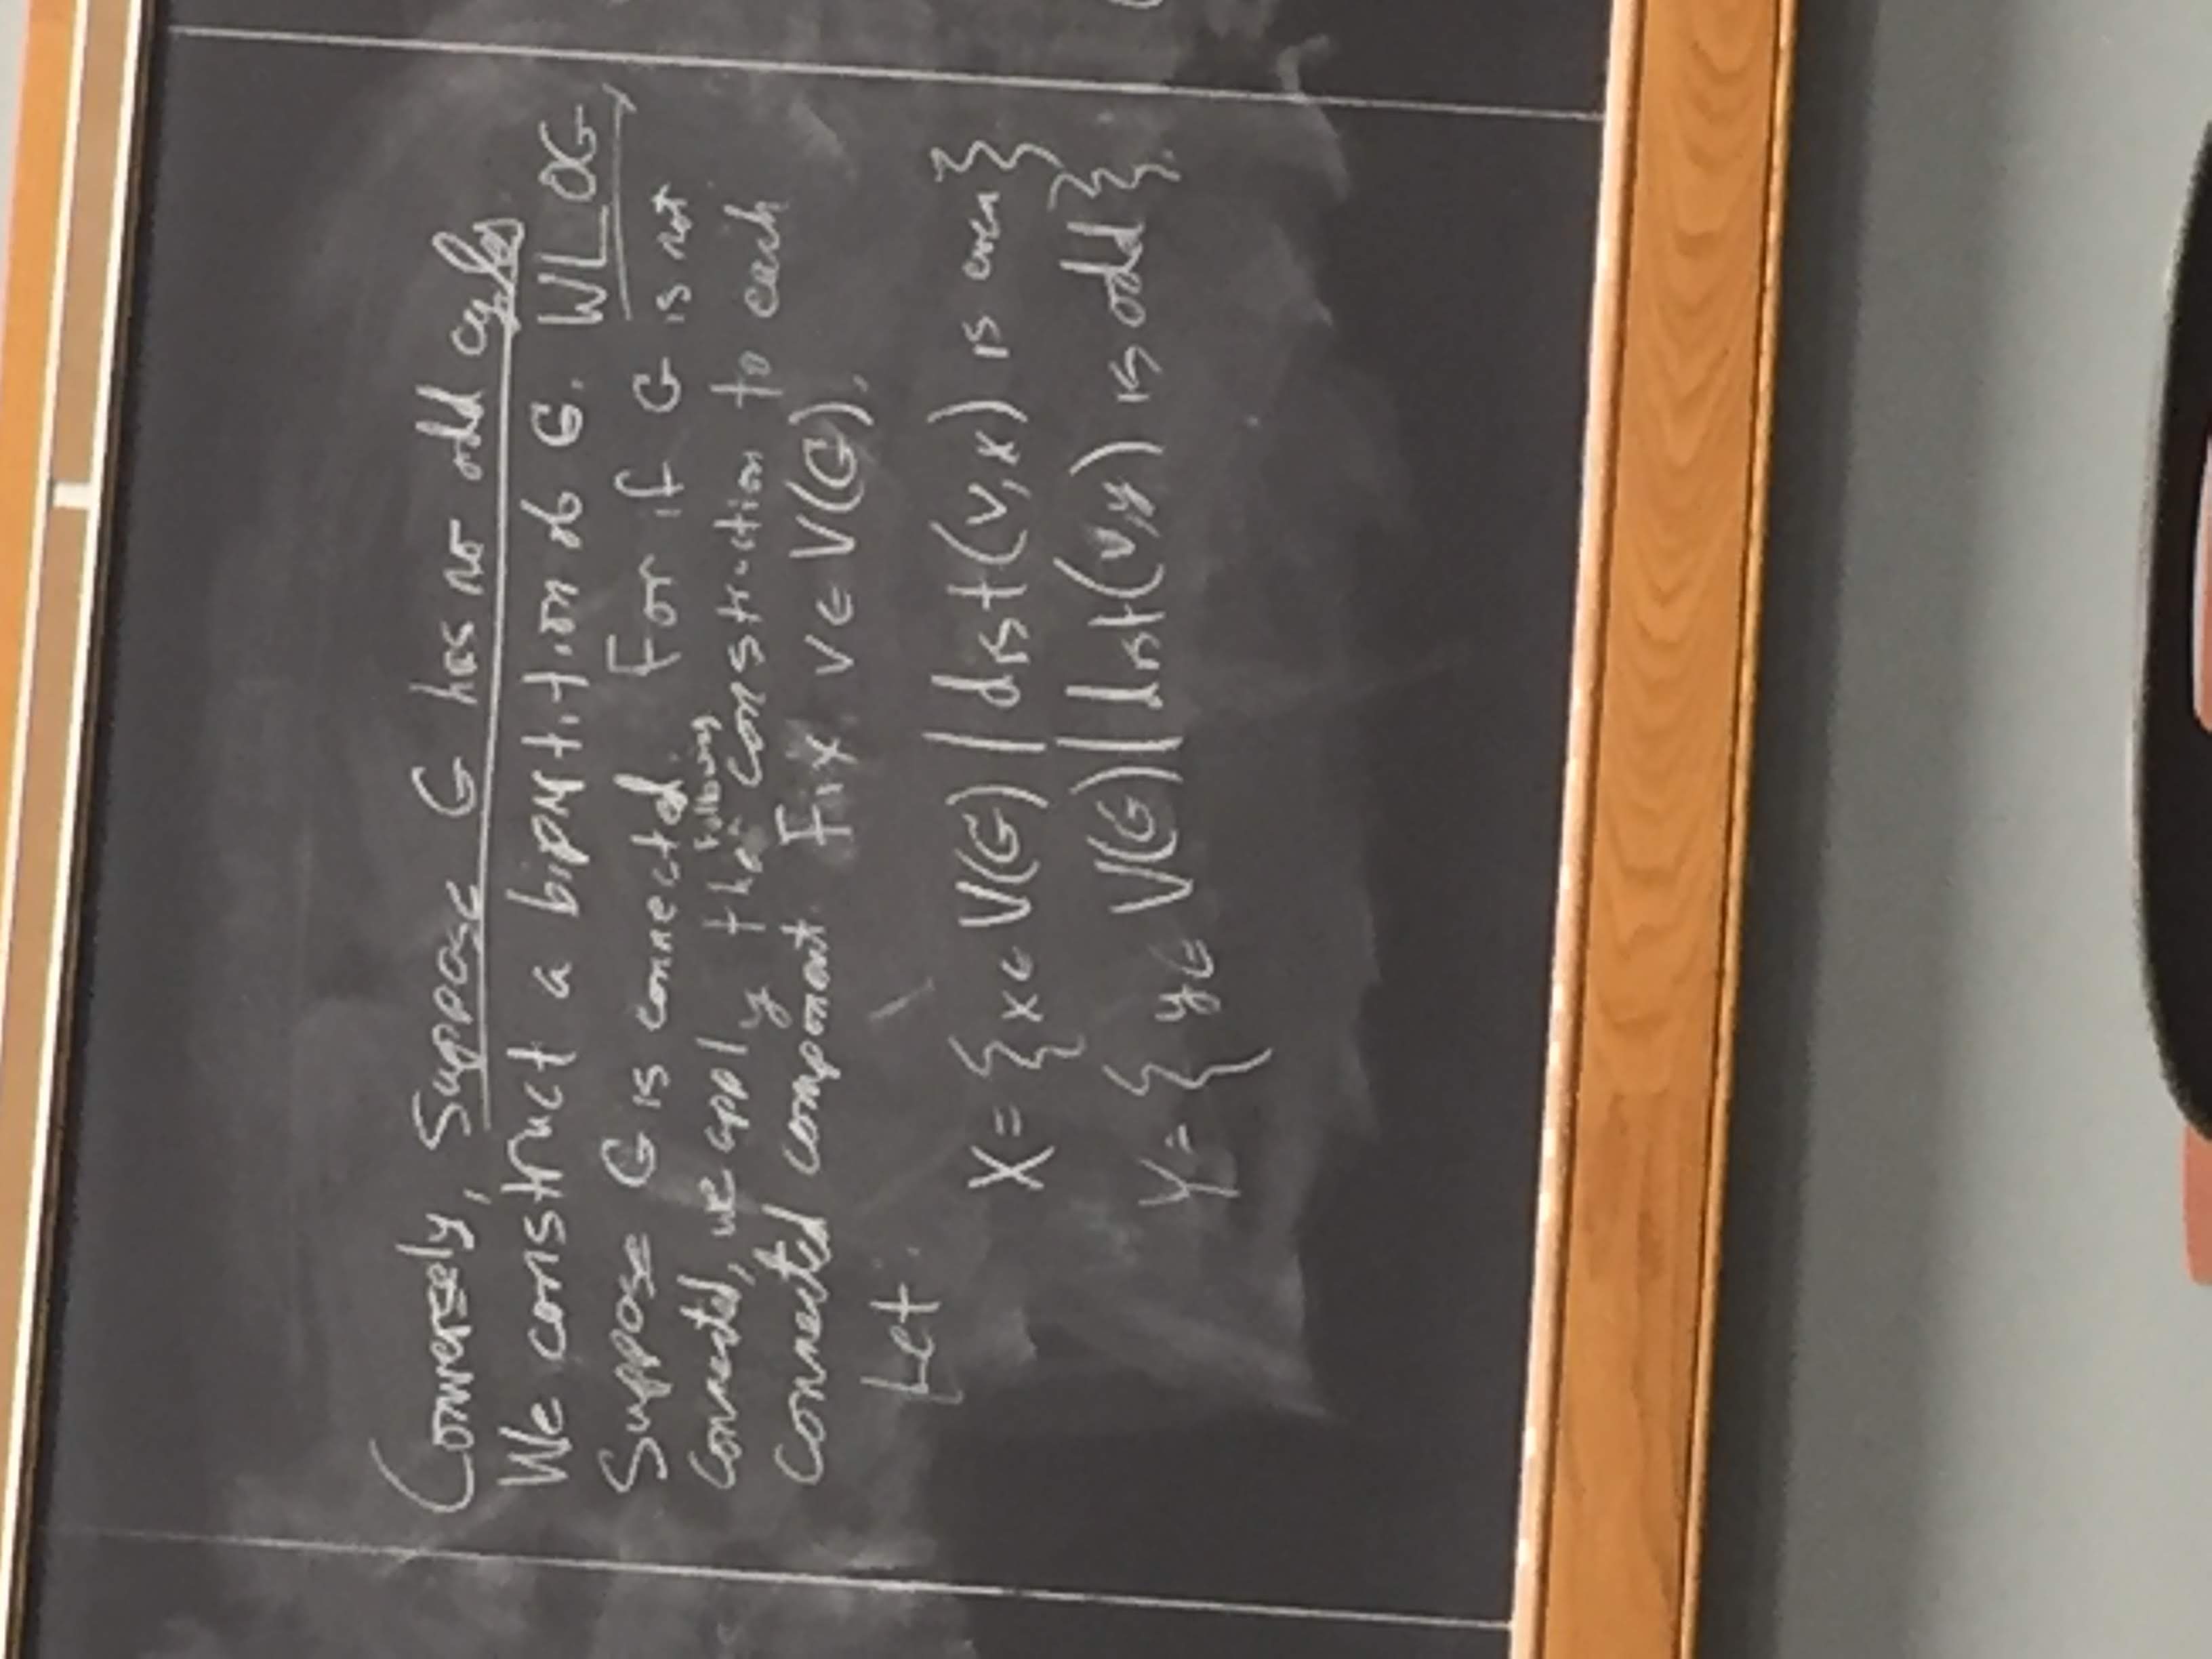 Conversely, Suppose G has no odd cycles
We construct a bipartition of G. WLOG,
Suppose G is connected. For if G is not
connected, we apply the following construction to each
connected component. Fix v ∈ V(G).
Let
X = { x ∈ V(G) | dist(v,x) is even }
Y = { y ∈ V(G) | dist(v,y) is odd }.